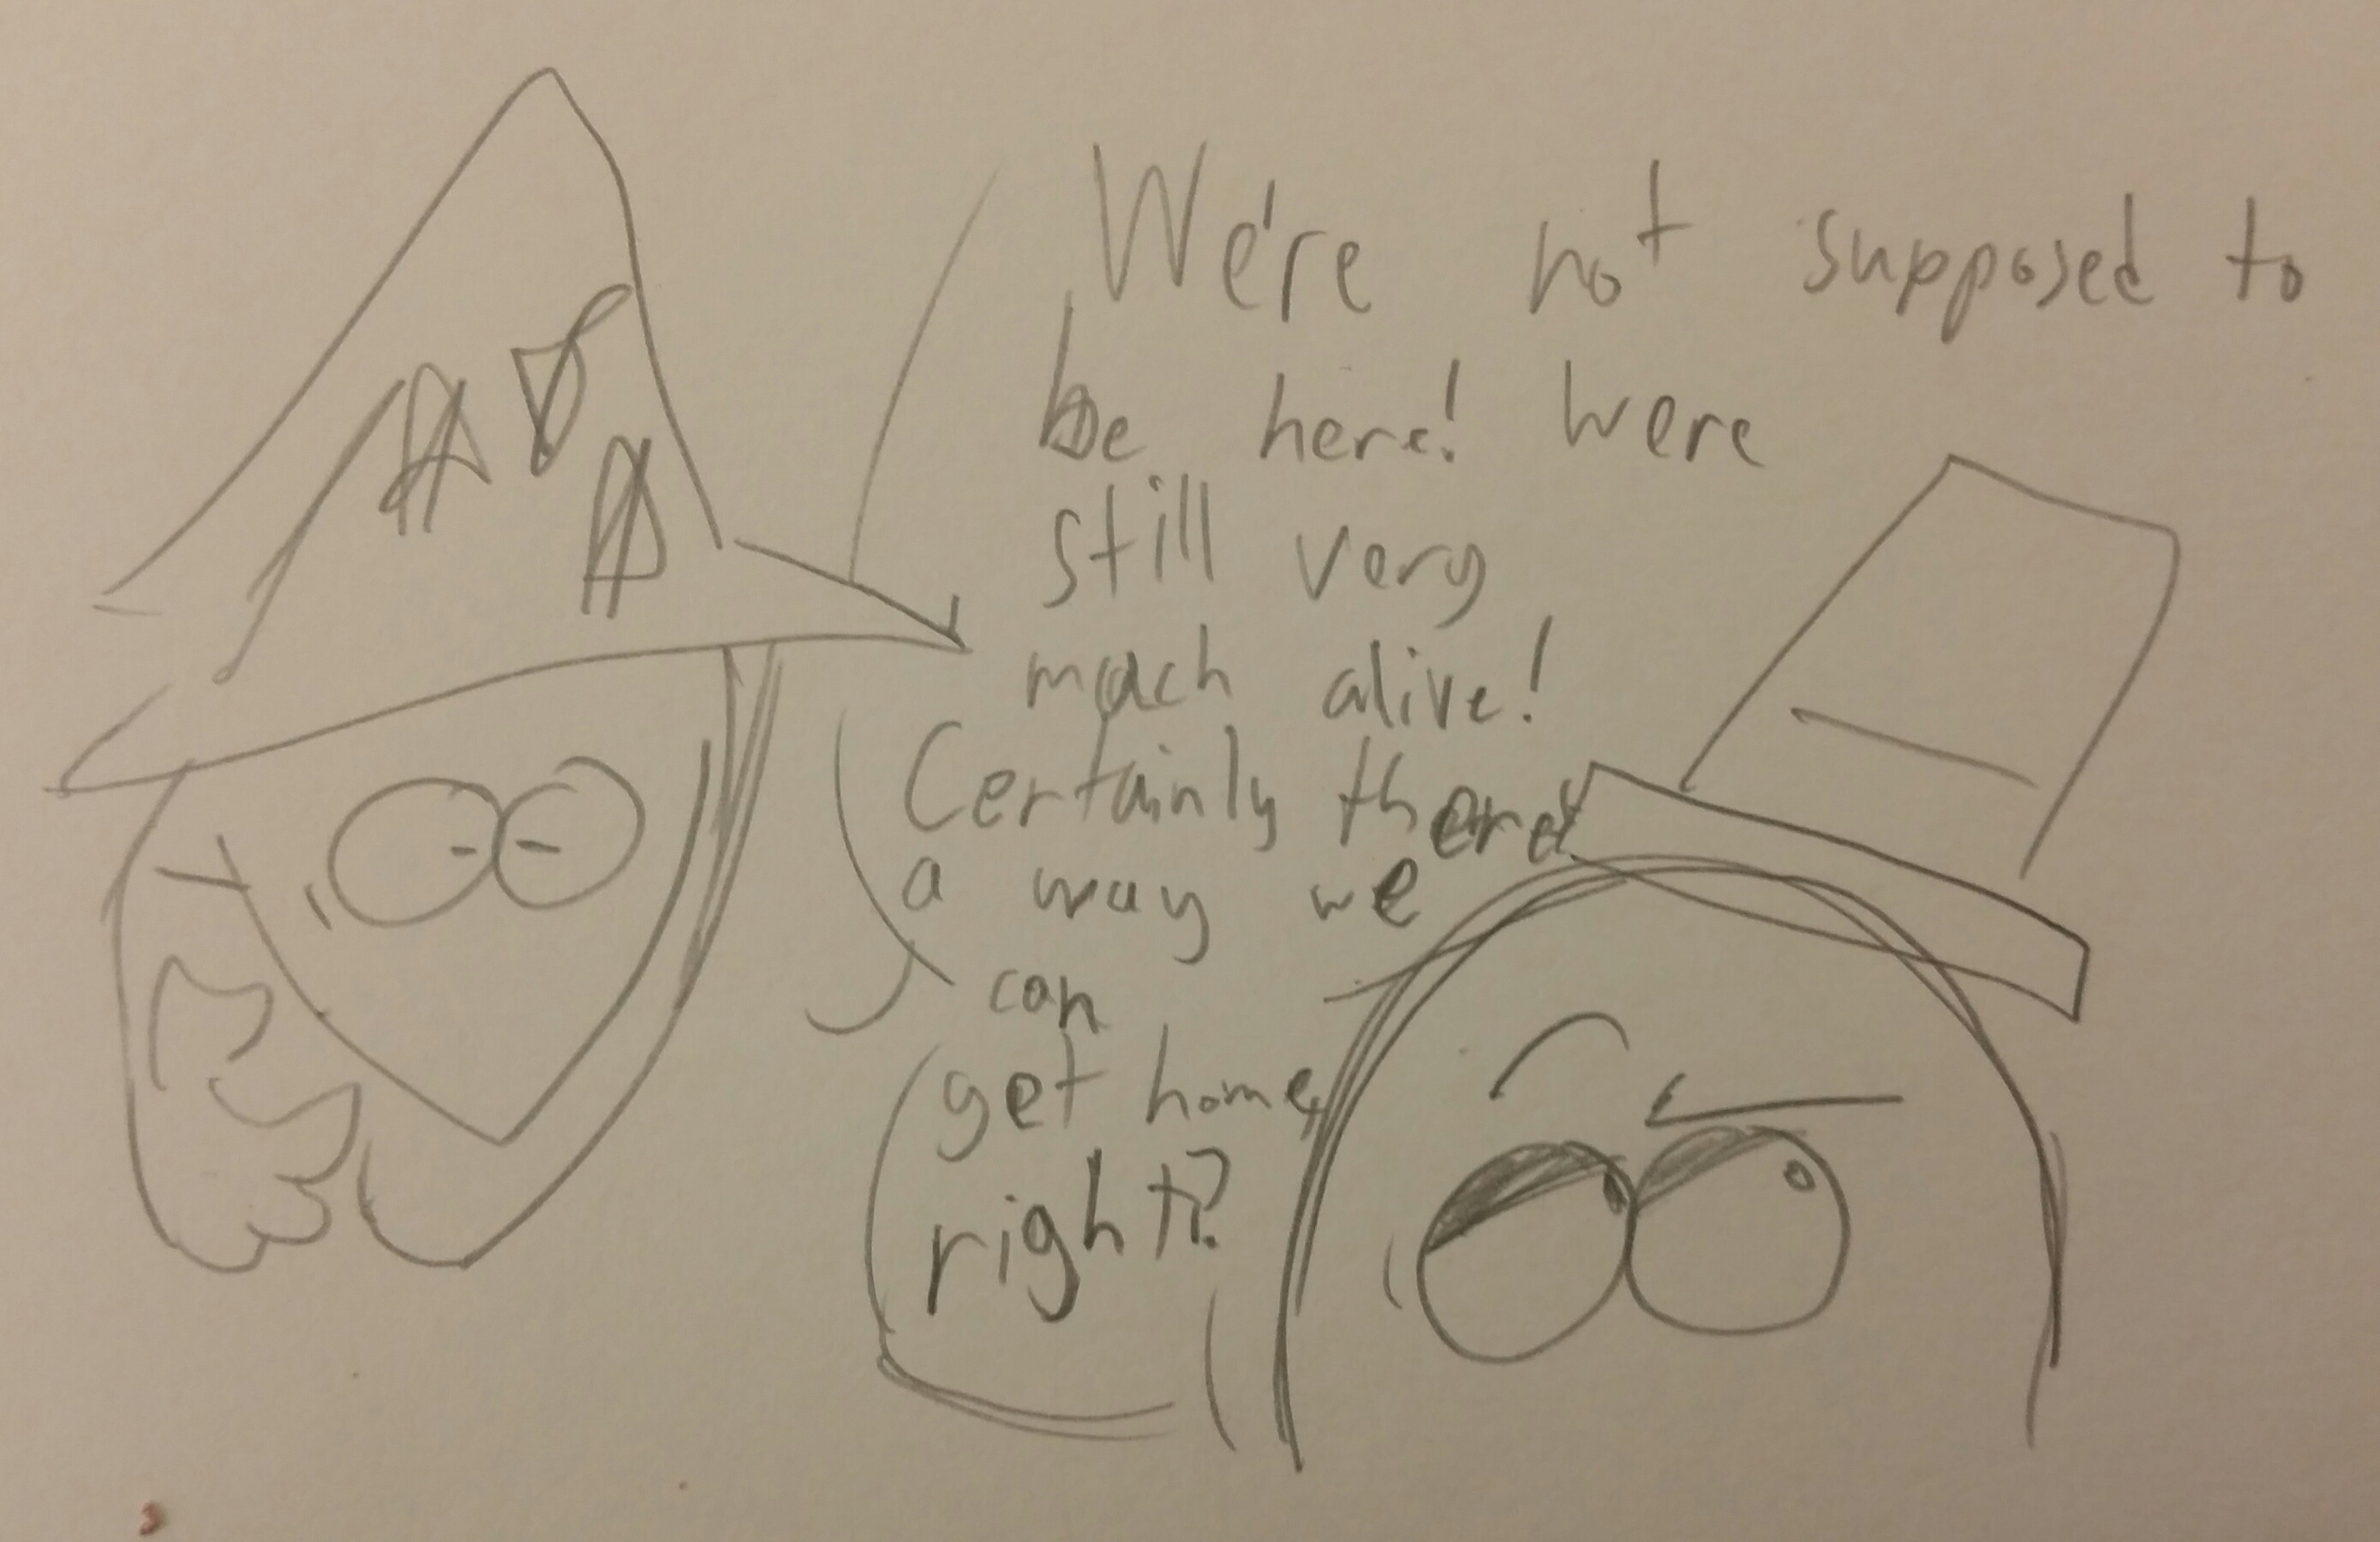 We're not supposed to
be here! were
still very
much alive!
Certainly there's
a way we
can
get home,
right?